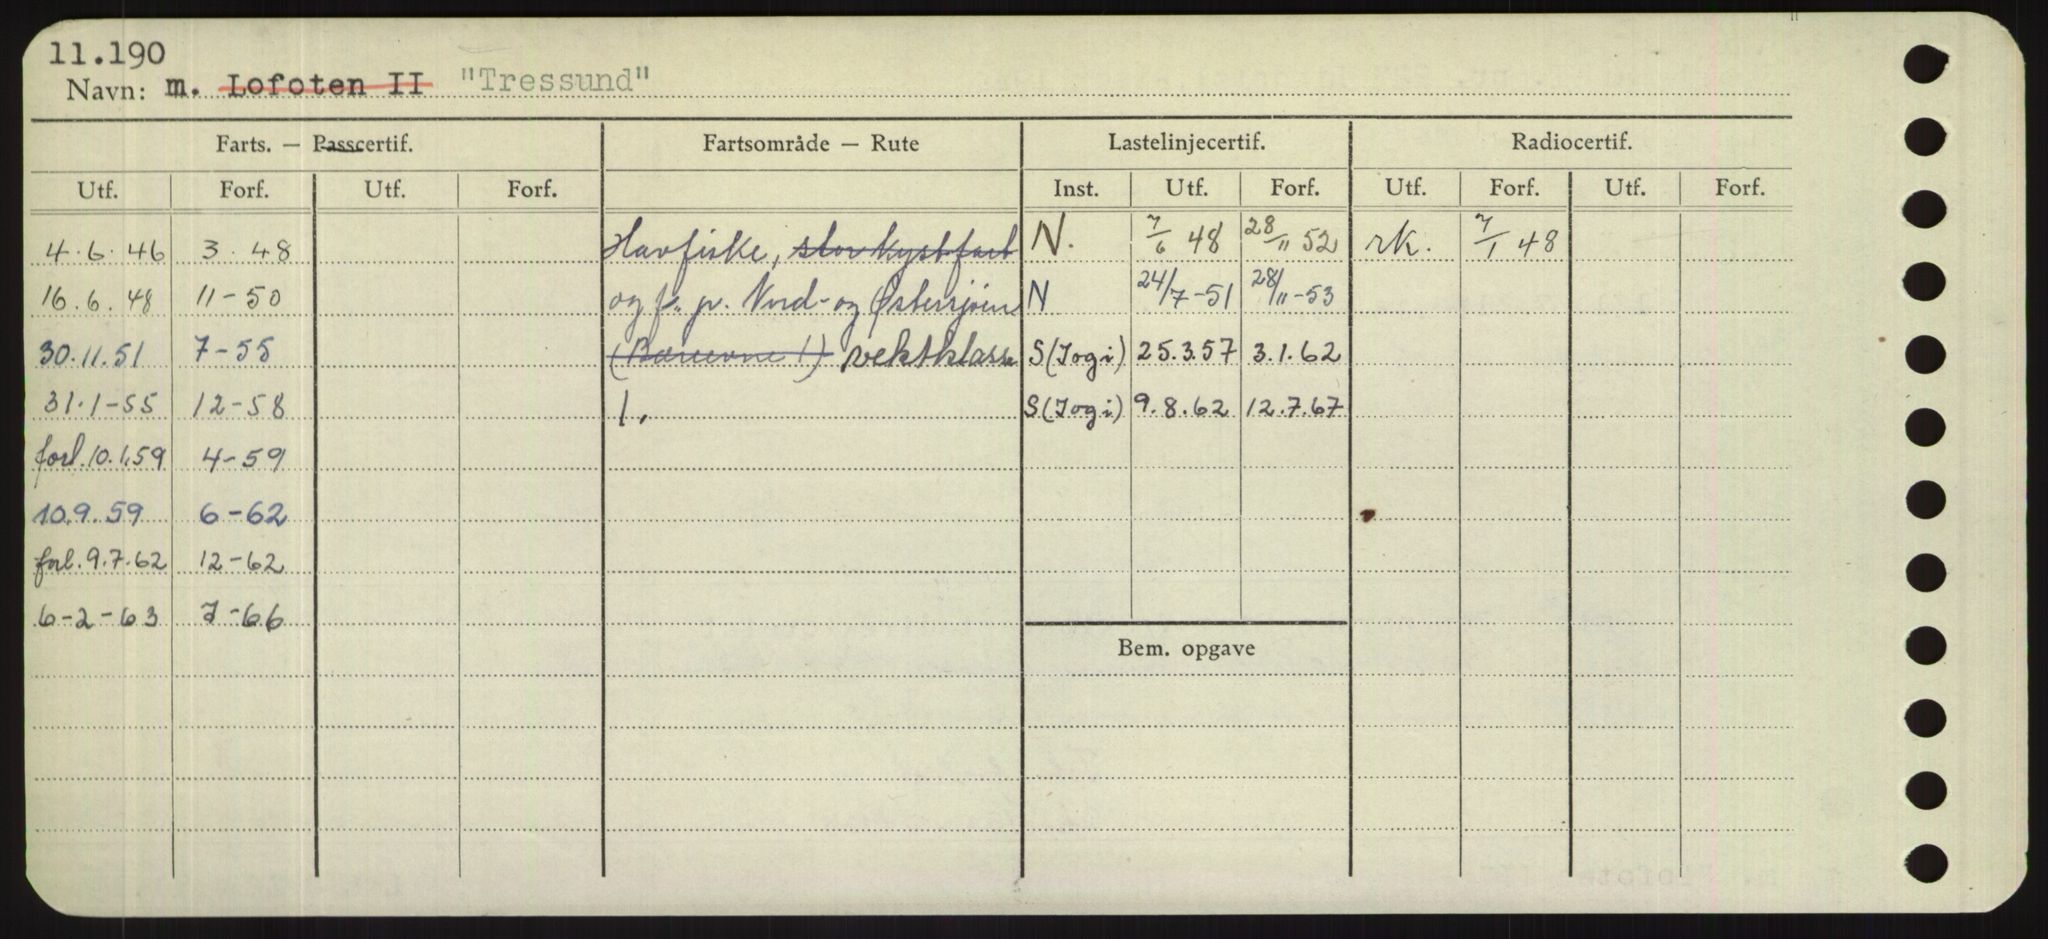 11.190
Navn: m. Lofoten II "Tressund"
Farts. — Passcertif. Fartsområde — Rute Lastelinjecertif. Radiocertif.
Utf. Forf. Utf. Forf. Inst. Utf. Forf. Utf. Forf. Utf. Forf.
4.6.46 3.48 Havfiske, stor kystfart N. 7/6 48 28/11 52 rk. 7/1 48
16.6.48 11-50 og f. p. Nord- og Østersjøen N 24/7-51 28/11-53
30.11.51 7-55 vektklasse S(Jogi) 25.3.57 3.1.62
31.1-55 12-58 1. S(Jogi) 9.8.62 12.7.67
forl.10.1.59 4-59
10.9.59 6-62
forl.9.7.62 12-62
6-2-63 7-66
Bem. opgave